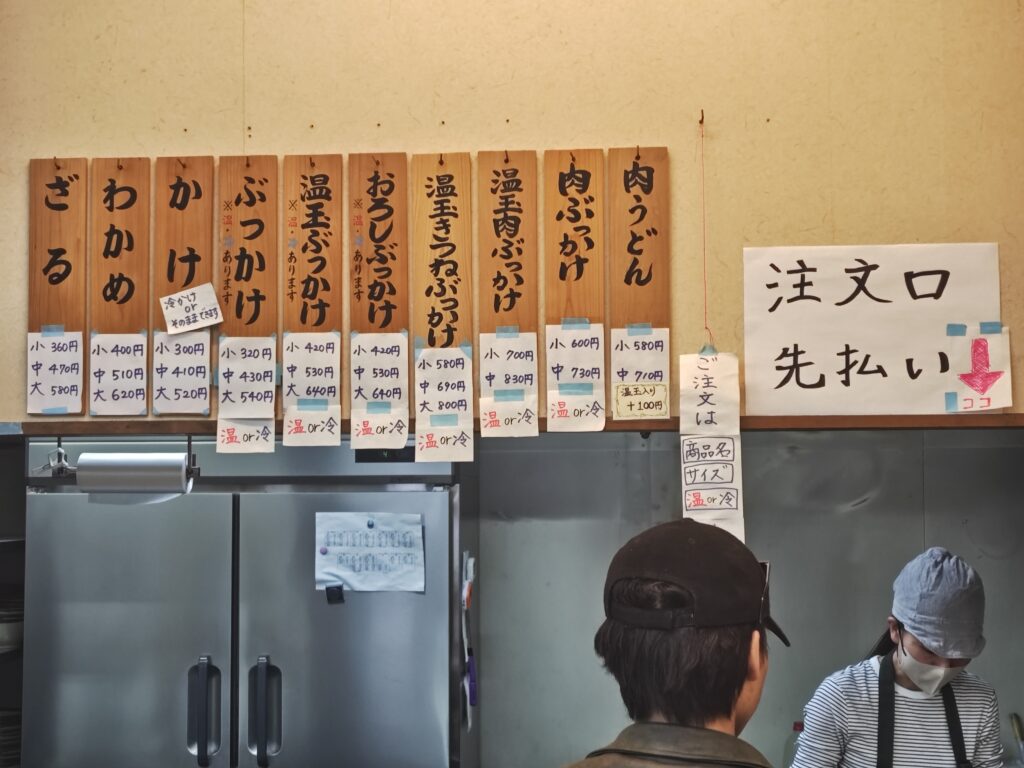 ざる
小 360円
中 470円
大 580円
わかめ
小 400円
中 510円
大 620円
かけ
冷かけ
or
そのままできます
小 300円
中 410円
大 520円
ぶっかけ
※温・冷あります
小 320円
中 430円
大 540円
温or冷
温玉ぶっかけ
※温・冷あります
小 420円
中 530円
大 640円
温or冷
おろしぶっかけ
※温・冷あります
小 420円
中 530円
大 640円
温or冷
温玉きつねぶっかけ
小 580円
中 690円
大 800円
温or冷
温玉肉ぶっかけ
小 700円
中 830円
温or冷
肉ぶっかけ
小 600円
中 730円
温or冷
肉うどん
小 580円
中 710円
温玉入り
+100円
ご注文は
商品名
サイズ
温or冷
注文口
先払い
ココ